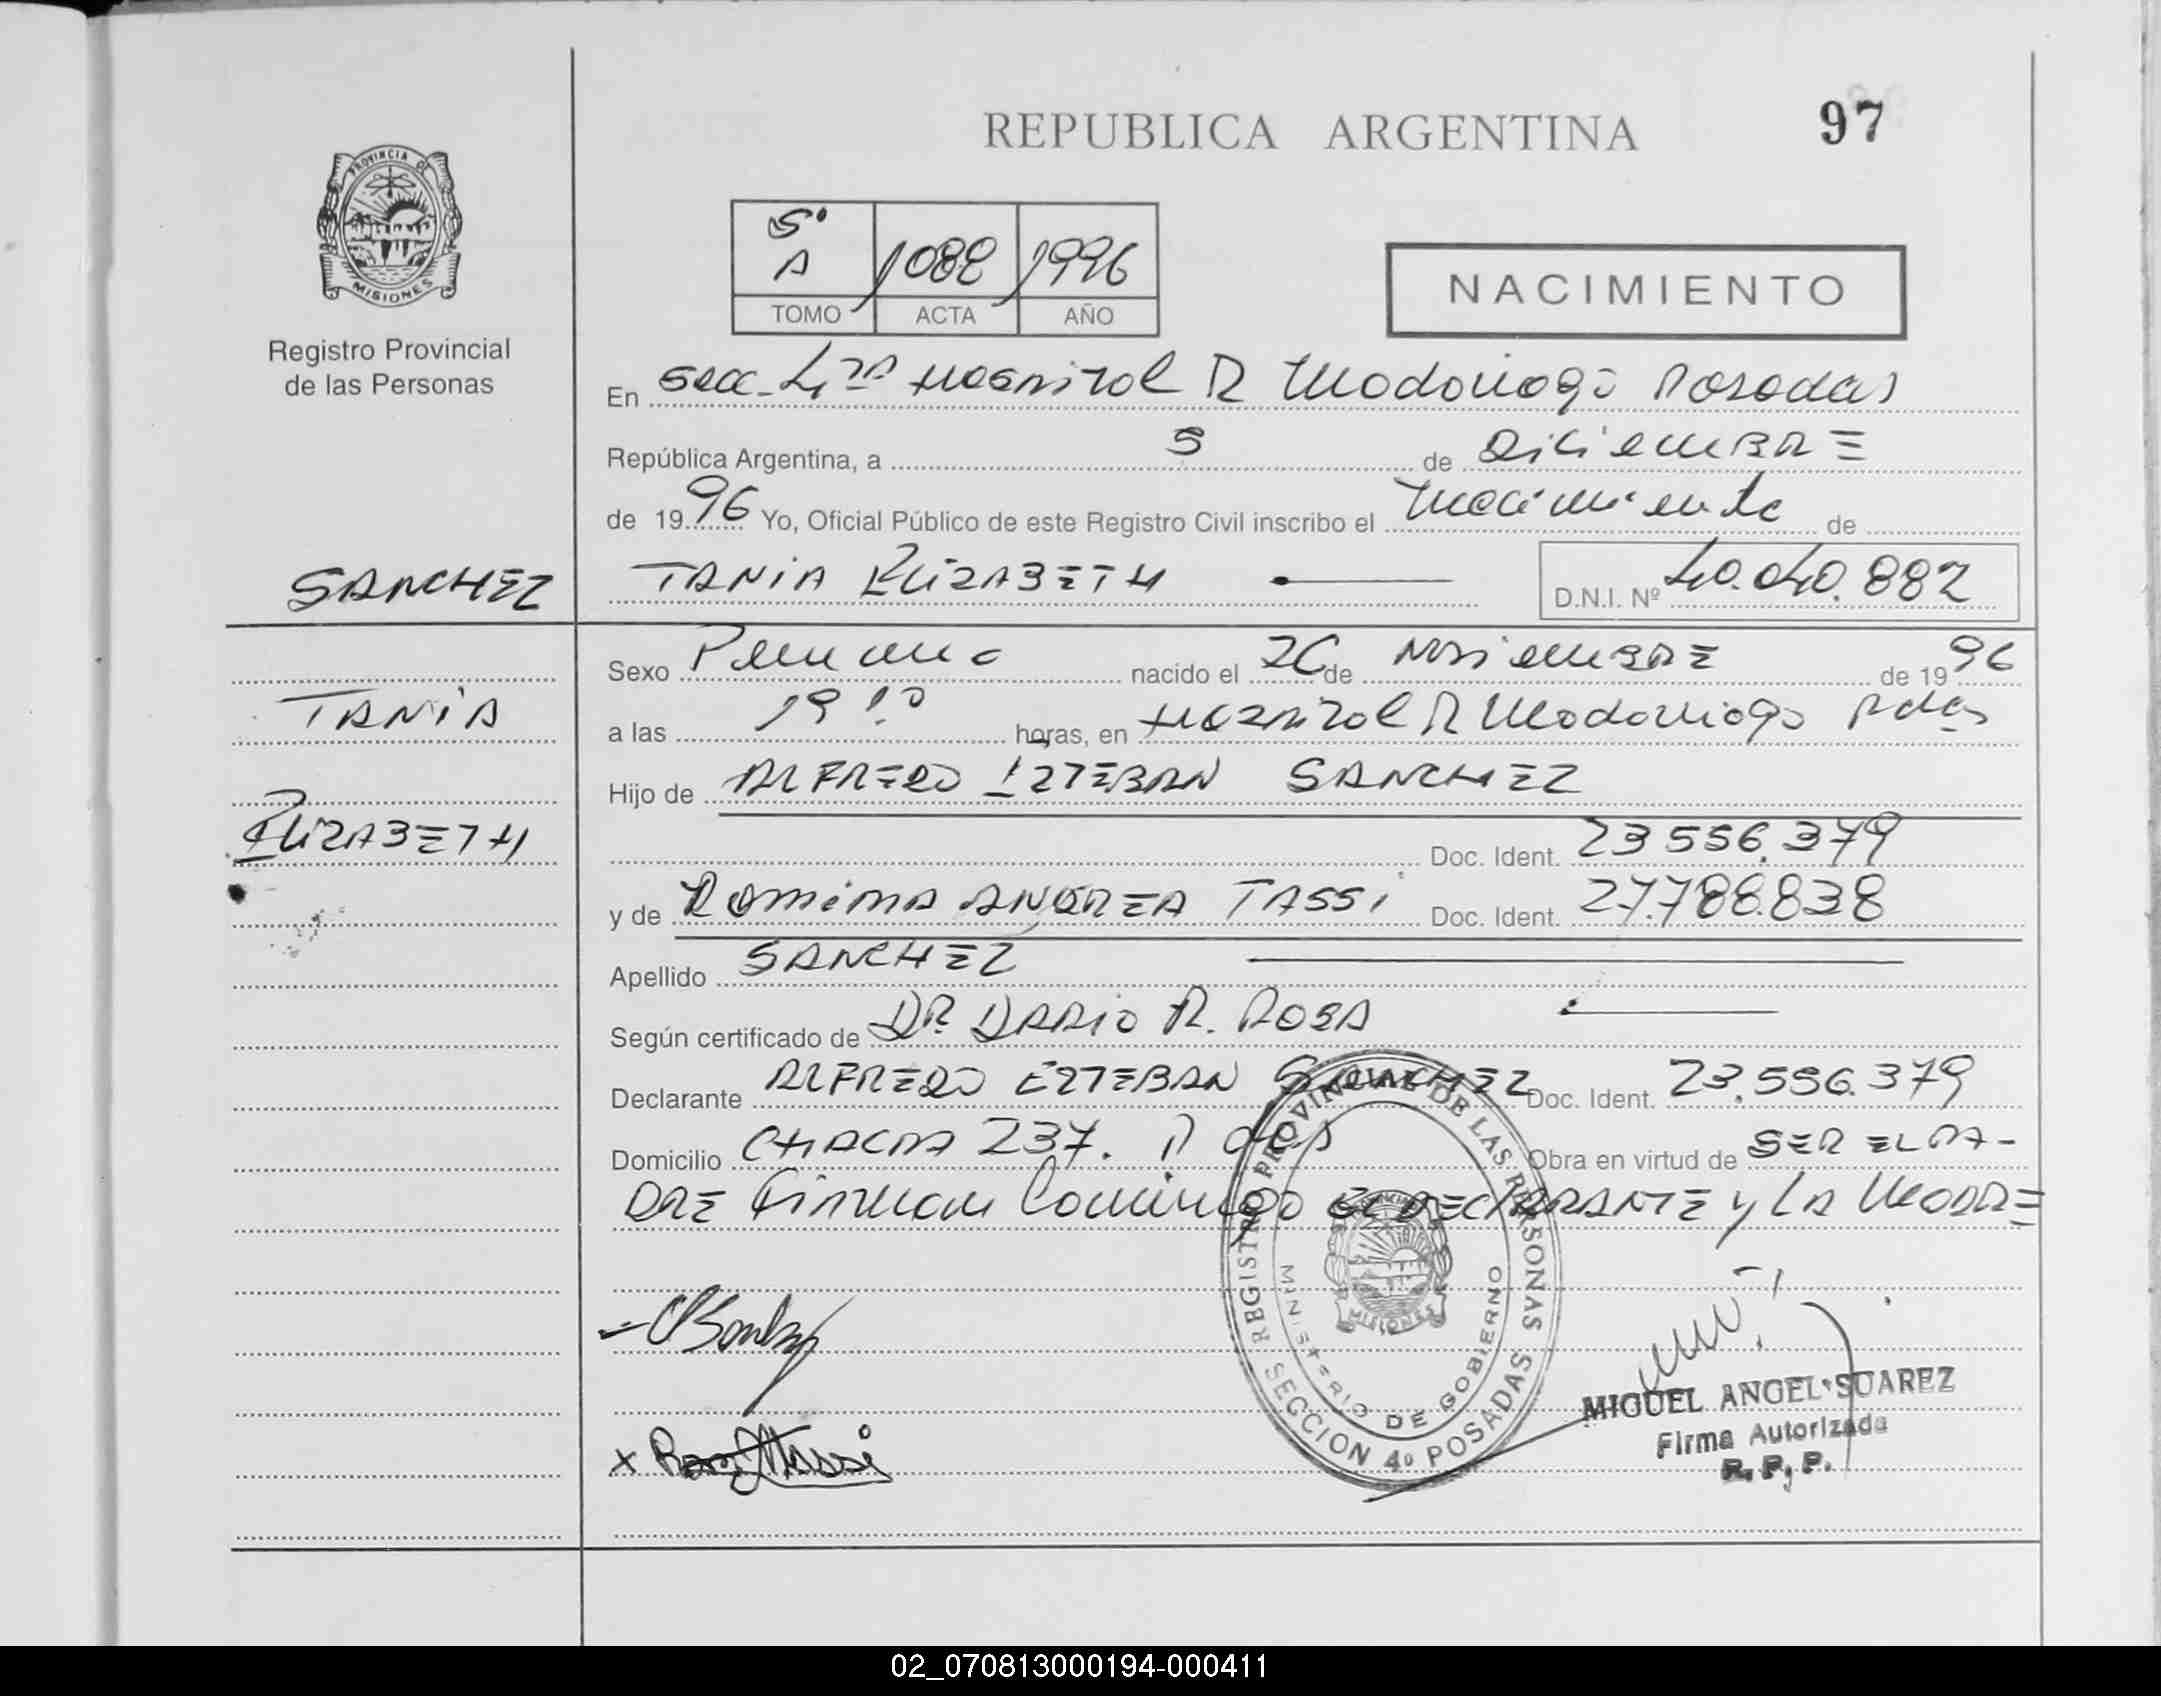 REPUBLICA ARGENTINA
97
PROVINCIA DE
MISIONES
Registro Provincial
de las Personas
5º
A 1088 1996
TOMO ACTA AÑO
NACIMIENTO
En Secc. 4ta Hospital R Madariaga Posadas
República Argentina, a 5 de Diciembre
de 1996 Yo, Oficial Público de este Registro Civil inscribo el Nacimiento de
SANCHEZ
TANIA ELIZABETH D.N.I. Nº 40.040.882
Sexo Femenino nacido el 26 de Noviembre de 1996
TANIA
a las 19 10 horas, en Hospital R Madariaga Pdas
Hijo de ALFREDO ESTEBAN SANCHEZ
ELIZABETH
Doc. Ident. 23.556.379
y de Romina ANDREA TASSI Doc. Ident. 27.788.838
Apellido SANCHEZ
Según certificado de DR. DARIO R. ROSA
Declarante ALFREDO ESTEBAN SANCHEZ Doc. Ident. 23.556.379
Domicilio CHACRA 237. Pdas Obra en virtud de SER EL PA-
DRE Firman Conmigo EL DECLARANTE y LA MADRE
REGISTRO PROVINCIAL DE LAS PERSONAS
MINISTERIO DE GOBIERNO
MISIONES
SECCION 4º POSADAS
MIGUEL ANGEL SUAREZ
Firma Autorizada
R. P. P.
02_070813000194-000411